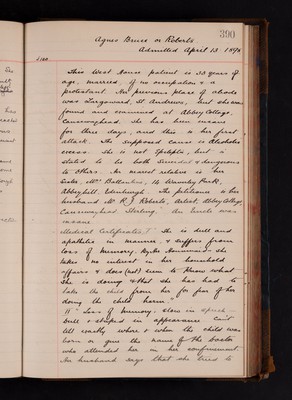 390
Agnes Bruce or Roberts
Admitted April 13 1896
This West House patient is 33 years of
age, married, of no occupation & a
protestant. Her previous place of abode
was Largoward, St Andrews, but she was
found and examined at Abbey Cottage,
Cambuskenneth. She has been insane
for three days, and this is her first
attack. The supposed cause is Alcoholic
excess. She is not Epileptic, but is
stated to be both Suicidal & dangerous
to others. Her nearest relative is her
Sister, Mrs Ballantine, 14 Waverley Park,
Abbeyhill, Edinburgh. The petitioner is her
husband Mr R. J. Roberts, Artist, Abbey Cottage,
Cambuskenneth, Stirling. An Uncle was
insane.
Medical Certificates I She is dull and
apathetic in manner, & suffers from
loss of memory. By her Husband she
takes no interest in her household
affairs & does not seem to know what
she is doing & that she has had to
take the child from her for fear of her
doing the child harm.
II Loss of memory, slow in speech
dull & stupid in appearance can't
tell exactly where or when the child was
born or give the name of the Doctor
who attended her in her confinement
Her husband says that she tried to